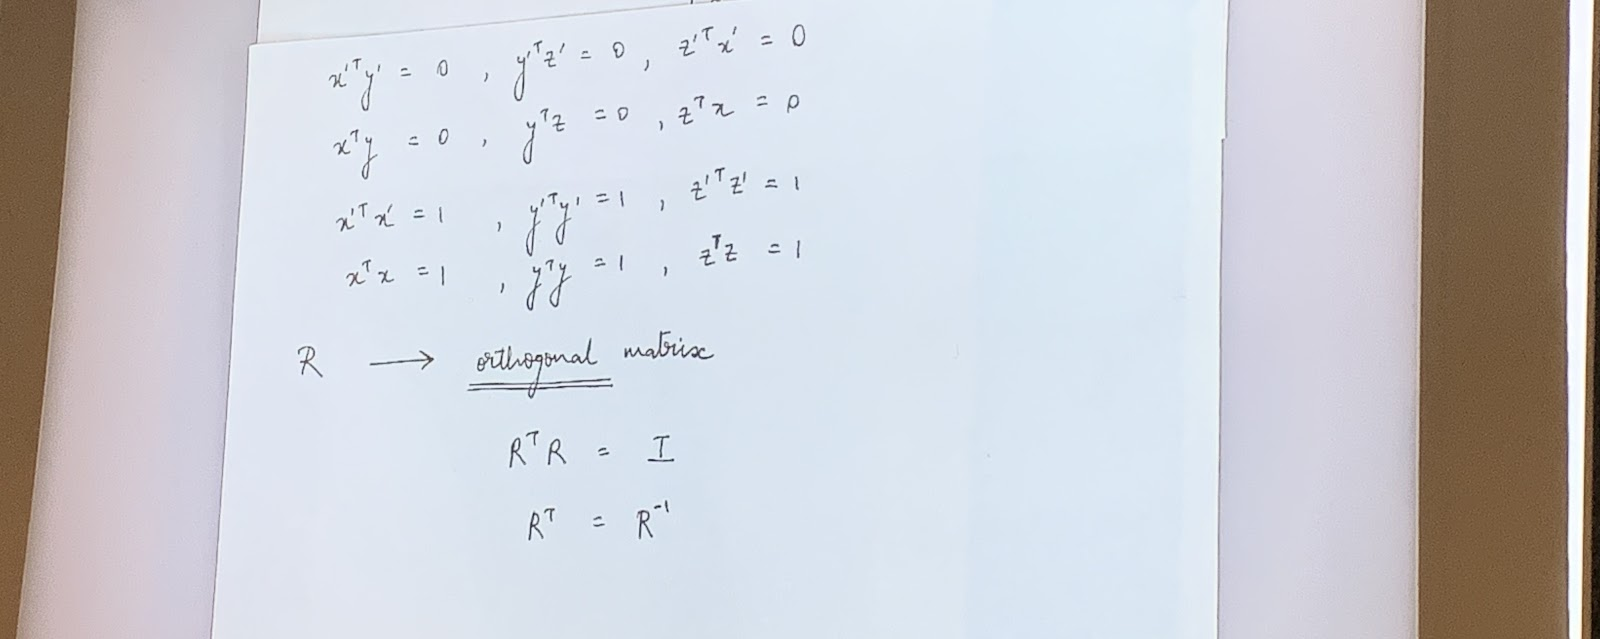 x'ᵀy' = 0 , y'ᵀz' = 0 , z'ᵀx' = 0
xᵀy = 0 , yᵀz = 0 , zᵀx = 0
x'ᵀx' = 1 , y'ᵀy' = 1 , z'ᵀz' = 1
xᵀx = 1 , yᵀy = 1 , zᵀz = 1
R ⟶ orthogonal matrix
RᵀR = I
Rᵀ = R⁻¹